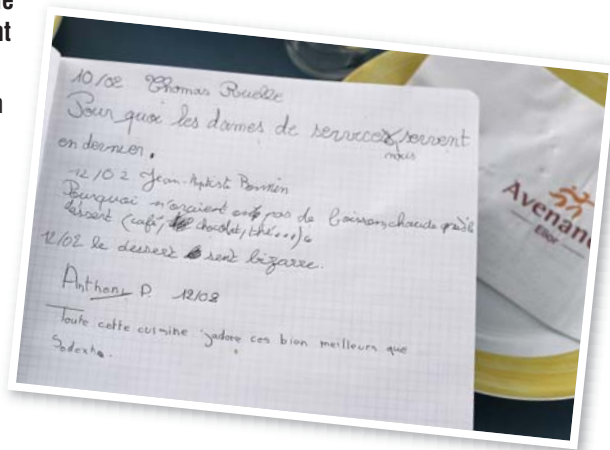 10/02 Thomas Ruelle
Pourquoi les dames de services servent
nous
en dernier.
12/02 Jean-Baptiste
Pourquoi n'oraient pas de boisson chaude après
dessert (café, chocolat, thé...)
12/02 le dessert sent bizarre.
Anthony P. 12/02
Toute cette cuisine j'adore ces bien meilleurs que
Sodexho.
Avenan
Elior